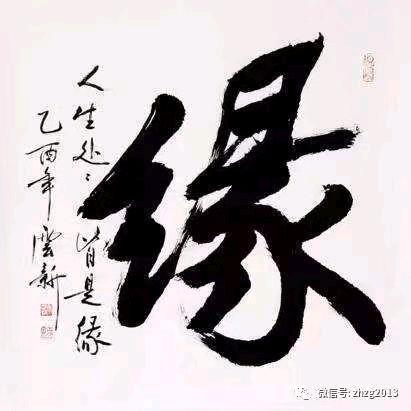 缘
人生处〻皆是缘
乙酉年雲新
微信号: zhzg2013